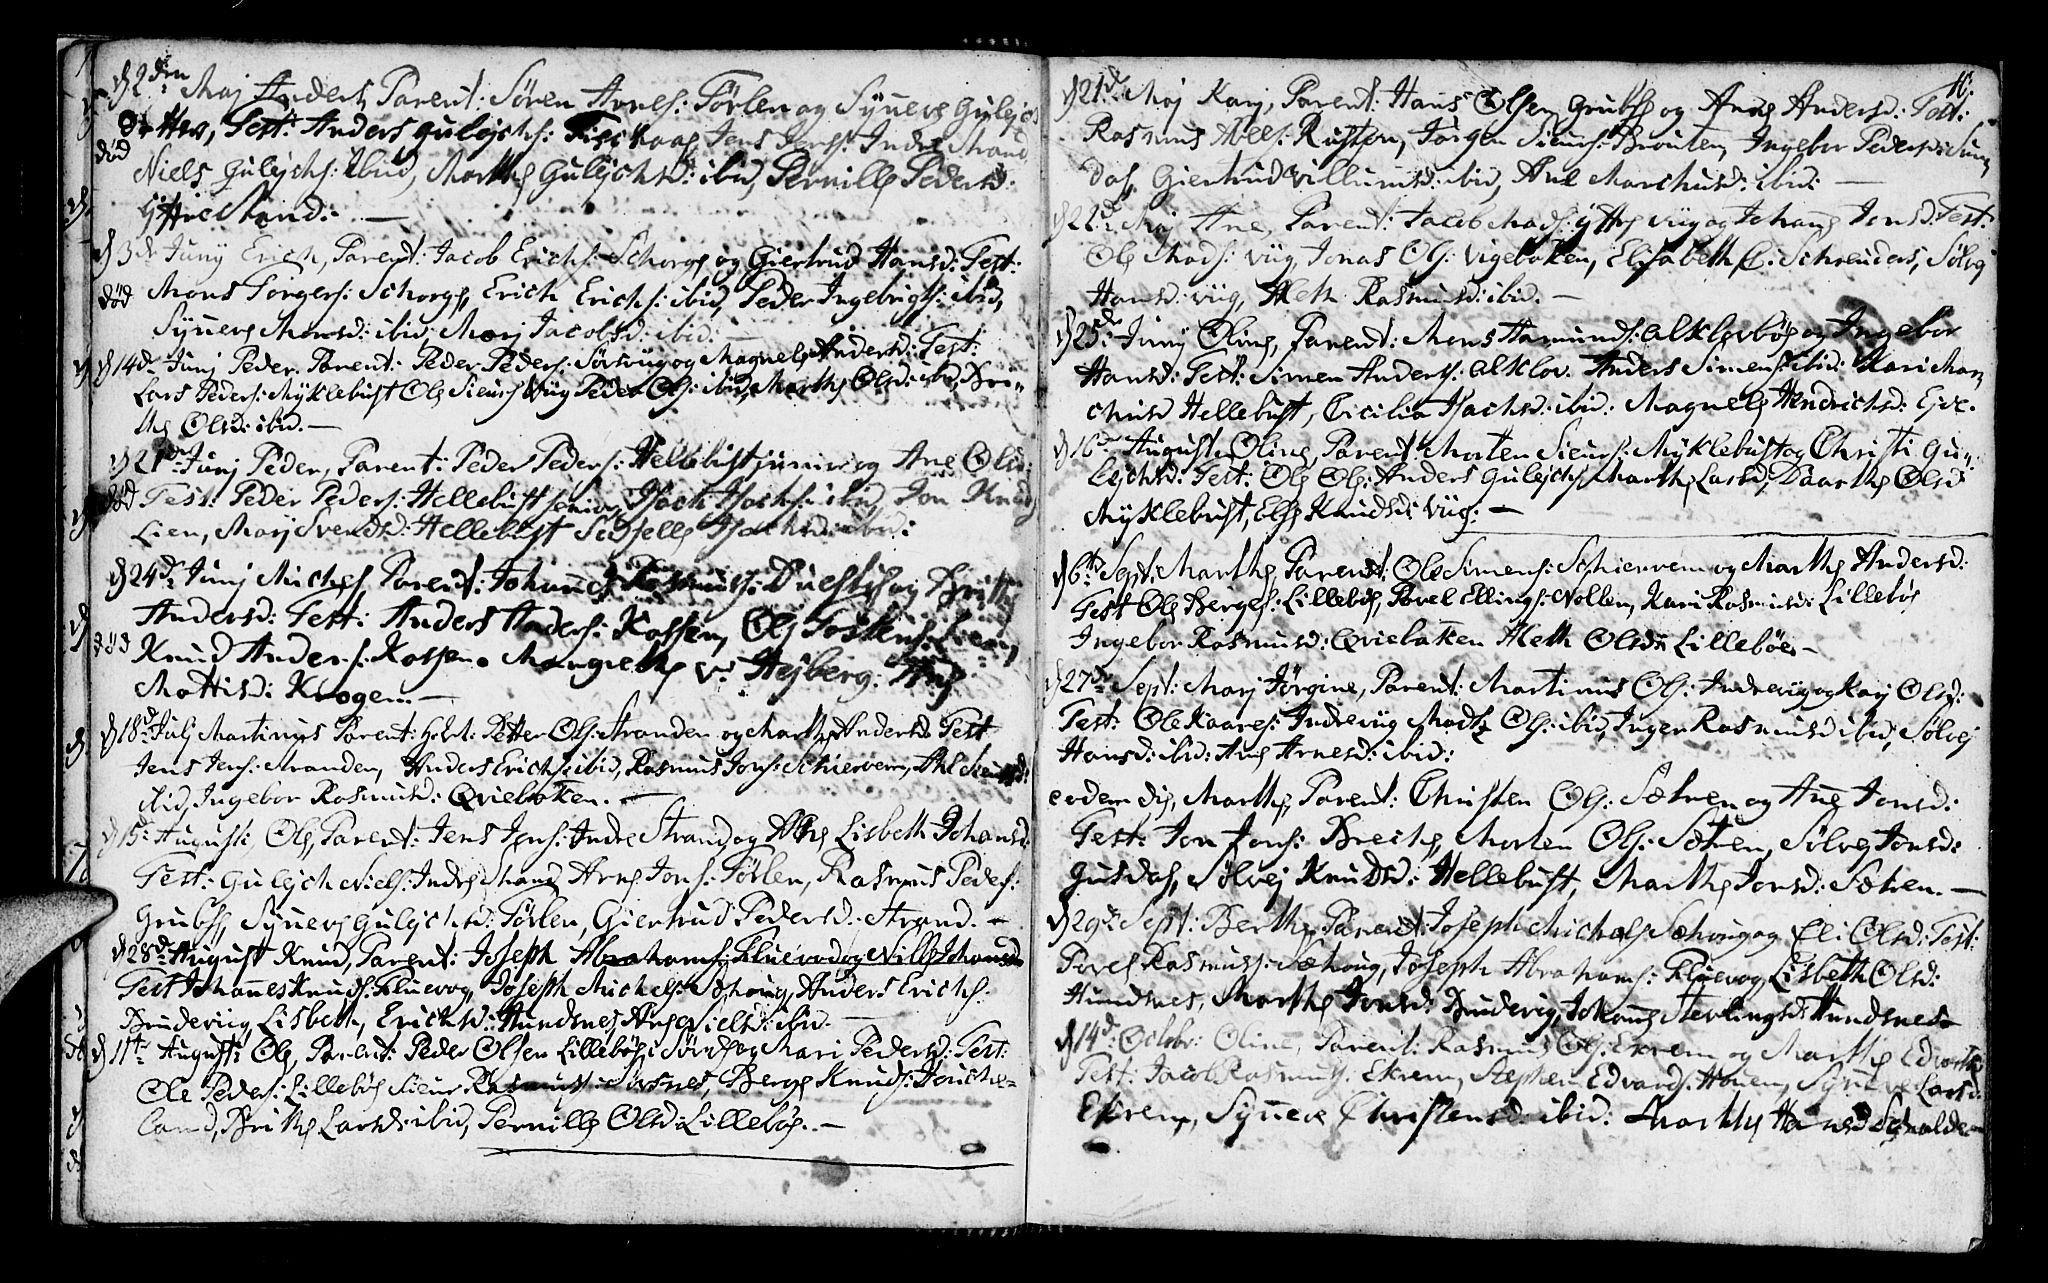 d 2den Maj Anders, Parent: Sören Arnes: Törlen og Synneve Gulejchs
død Test: Anders Gulejchs: Jens Jens: Indre Strand
Niels Gulejchs: ibid, Marthe Gulejchsd: ibid, Pernille Pedersd:
Strand: —
d 3de Junij Erich, Parent: Jacob Erichs: Schorge og Giertrud Hansd: Test:
død Mons Torgers: Schorge, Erich Erichs: ibid, Peder Ingebrigts: ibid,
Synneve Monsd: ibid, Marj Jacobsd: ibid. —
d 14de Junj Peder. Parent: Peder Peders: Sörviig og Magnele Andersd: Test:
Lars Peders: Myklebust Ole Siurs Viig Peder Ols: ibid, Marthe Olsd: ibid, Bri-
the Olsd: ibid. —
d 21de Junj Peder, Parent: Peder Peders: Hellebust junior og Ane Olsd:
død Test: Peder Peders: Hellebust senior, Isach Isachs: ibid, Jon Knuds
Lien, Marj Svendsd: Hellebust Isachsd: ibid:
d 24de Junj Michel, Parent: Johannes Rasmus: og Britthe
død Andersd: Test: Anders Anders: Kossen, Ole Tostens:
Knud Anders: Kossen. Margrethe v: Hejberg. Ane
Mattisd: Krogen. —
d 18de Julj Martinus Parent: Petter Ols: Stranden og Marthe Andersd: Test
Jens Jens: Stranden, Anders Erichs: ibid, Rasmus Jons: Schiervem,
ibid, Ingebor Rasmusd: Qviebaken. —
d 15de Augusti, Ole, Parent: Jens Jens: Indre Strand og Lisbeth Johansd:
Test: Gulejch Niels: Indre Strand, Arne Jons: Törlen, Rasmus Peders:
Grubse, Synneve Gulejchsd: Törlen, Giertrud Pedersd: Strand. —
d 28de August Knud, Parent: Joseph Abrahams: Fluevog og Nille Johansd:
Test Johannes Knuds: Fluevog, Joseph Michels: Sæhoug, Anders Erichs:
Bruderviig Lisbeth, Erichsd: Hundsnes, Ane Nielsd: ibid. —
d 11te Augusti Ole, Parent: Peder Olsen Lilleböe og Mari Pedersd: Test:
Ole Peders: Lilleböe Siur Rasmus: Aursnes, Berge Knuds: Houche-
land, Brithe Larsd: ibid, Pernille Olsd: Lilleböe. —
d 21de Maj Karj, Parent: Hans Olsen Grubse og Ane Andersd: Test:
Rasmus Niels: Rusten, Jörgen Siurs: Brouten, Ingebor Pedersd: Sun-
dal, Giertrud Villumsd: ibid, Ane Marchusd: ibid: —
d 22de Maj Ane, Parent: Jacob Mads: yttre viig og Johanne Jonsd: Test:
Ole Mads: viig, Jonas Ols: vigebaken, Elisabeth C: Schreuders, Sölvej
Hansd: viig, Aleth Rasmusd: ibid. —
d 25de Junij Oline, Parent: Mons Hamunds: Alkleböe og Ingebor
Hansd: Test: Simen Anders: Alklov. Anders Simens: ibid: Kari Mar-
chusd Hellebust, Cicilia Isachsd: ibid: Magnele Hendrichsd: Ejde.
d 16de August Oline, Parent Morten Siurs: Myklebust og Christi Gu-
lejchsd: Test: Ole Ols: Anders Gulejchs, Marthe Larsd, Daarthe Olsd
Myklebust, Else Knudsd: Viig: —
d 6te Sept: Marthe, Parent: Ole Simens: Schiervem og Marthe Andersd:
Test Ole Berges: Lilleböe, Povel Ellings: Nollen, Kari Rasmusd: Lilleböe
Ingebor Rasmusd: Qviebaken Aleth Olsd: Lilleböe —
d 27de Sept: Marj Jörgine, Parent: Martinus Ols: Indreviig og Karj Olsd:
Test: Ole Kaares: Indreviig Mads Ols: ibid, Inger Rasmusd ibid, Sölvej
Hansd: ibid: Ane Arnesd: ibid:
eodem die, Marthe, Parent: Christen Ols: Sætren og Ane Jonsd:
Test: Jon Jons: Breiche, Morten Ols: Sætren, Sölvej Jonsd:
Gusdal, Sölvej Knudsd: Hellebust, Marthe Jonsd: Sætren. —
d 29de Sept: Berthe, Parent: Joseph Michels Sæhoug og Eli Olsd: Test:
Povel Rasmuss: Sæhoug, Joseph Abrahams: Fluevog, Lisbeth Olsd:
Hundsnes, Marthe Jonsd: Bruderviig, Johanne Sterlingsd: Hundsnes
d 14de Octobr: Oline, Parent: Rasmus Ols: Ekrem og Marthe Edvardsd:
Test: Jacob Rasmus: Ekrem, Stephen Edvards: Houen, Synneve Larsd:
Ekrem, Synneve Christensd: ibid: Marthe Hansd